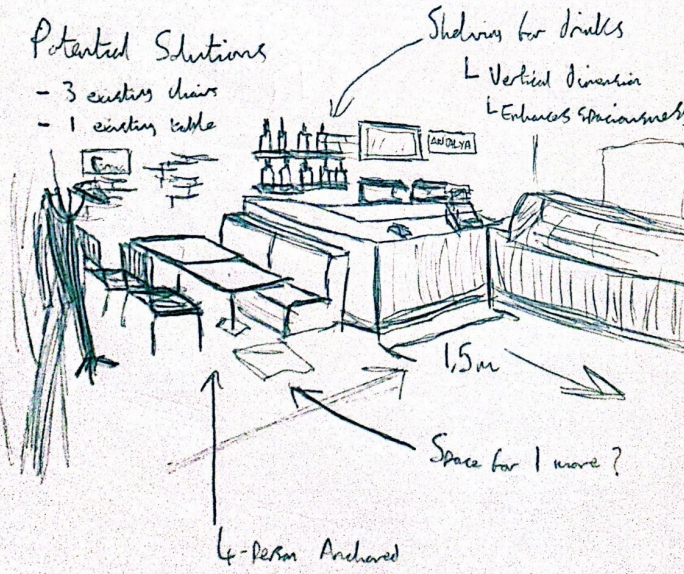 Potential Solutions
- 3 existing chairs
- 1 existing table
Shelving for drinks
Vertical dimension
Enhances spaciousness
ANTALYA
1,5m
Space for 1 more ?
4-Person Anchored